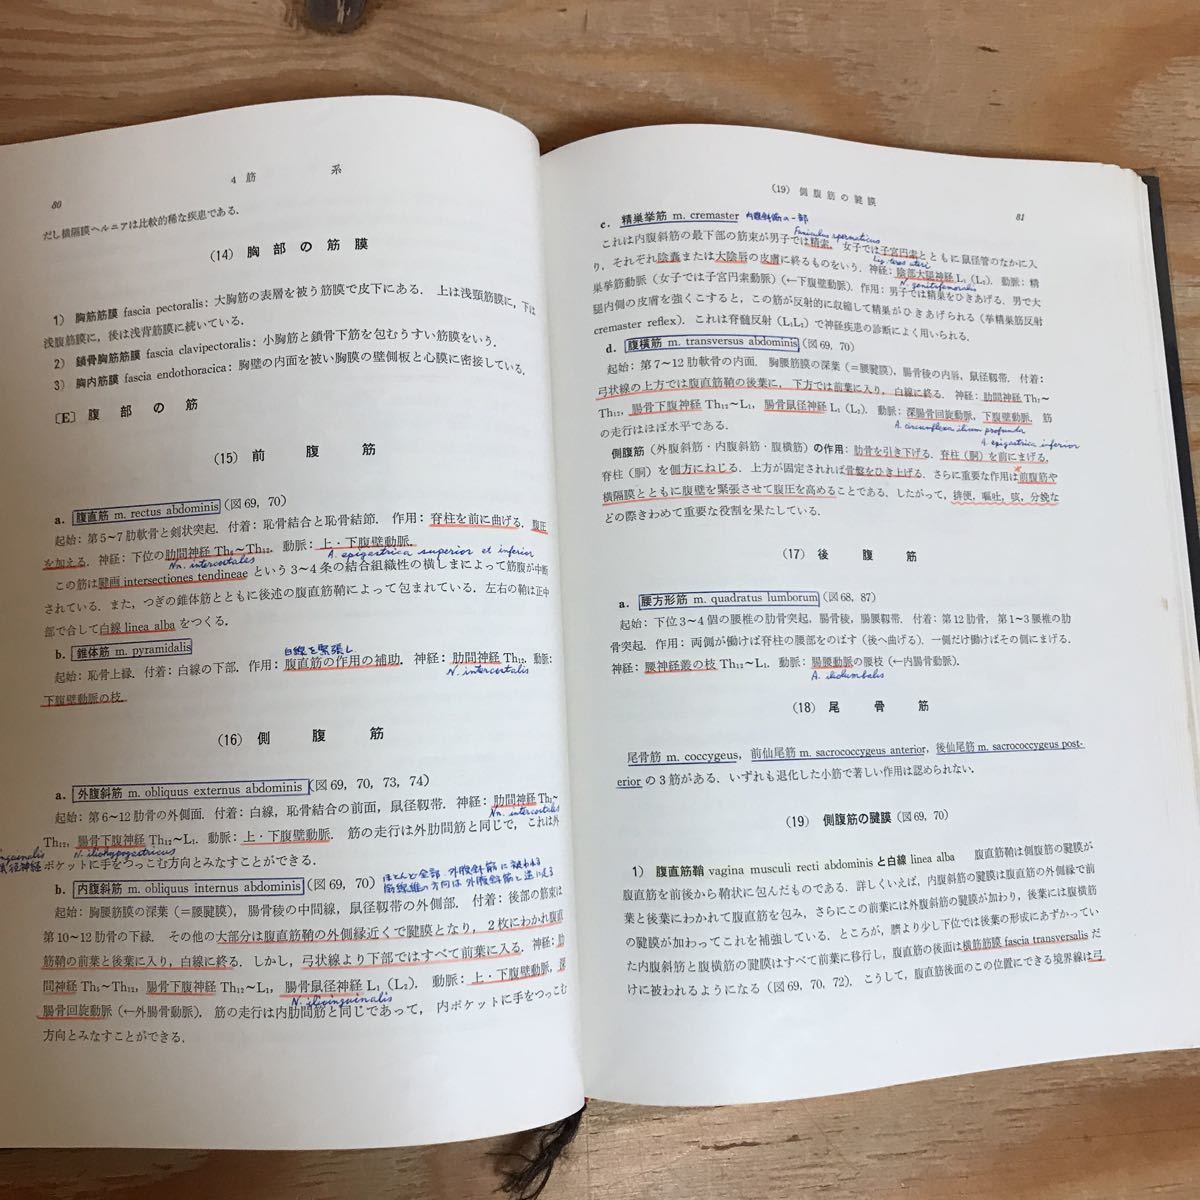 80
4 筋 系
だし横隔膜ヘルニアは比較的稀な疾患である.
(14) 胸部の筋膜
1) 胸筋筋膜 fascia pectoralis: 大胸筋の表層を被う筋膜で皮下にある. 上は浅頸筋膜に, 下は
浅腹筋膜に, 後は浅背筋膜に続いている.
2) 鎖骨胸筋筋膜 fascia clavipectoralis: 小胸筋と鎖骨下筋を包むうすい筋膜をいう.
3) 胸内筋膜 fascia endothoracica: 胸壁の内面を被い胸膜の壁側板と心膜に密接している.
[E] 腹部の筋
(15) 前腹筋
a. 腹直筋 m. rectus abdominis (図69, 70)
起始: 第5~7肋軟骨と剣状突起. 付着: 恥骨結合と恥骨結節. 作用: 脊柱を前に曲げる. 腹圧
を加える. 神経: 下位の肋間神経 Th₆~Th₁₂. 動脈: 上・下腹壁動脈.
Nn. intercostales A. epigastrica superior et inferior
この筋は腱画 intersectiones tendineae という3~4条の結合組織性の横しまによって筋腹が中断
されている. また, つぎの錐体筋とともに後述の腹直筋鞘によって包まれている. 左右の鞘は正中
部で合して白線 linea alba をつくる.
b. 錐体筋 m. pyramidalis
白線を緊張し
起始: 恥骨上縁. 付着: 白線の下部. 作用: 腹直筋の作用の補助. 神経: 肋間神経 Th₁₂. 動脈:
N. intercostalis
下腹壁動脈の枝.
(16) 側腹筋
a. 外腹斜筋 m. obliquus externus abdominis (図69, 70, 73, 74)
起始: 第6~12肋骨の外側面. 付着: 白線, 恥骨結合の前面, 鼠径靱帯. 神経: 肋間神経 Th₅~
Nn. intercostales
Th₁₂, 腸骨下腹神経 Th₁₂~L₁. 動脈: 上・下腹壁動脈. 筋の走行は外肋間筋と同じで, これは外
N. iliohypogastricus
ポケットに手をつっこむ方向とみなすことができる.
b. 内腹斜筋 m. obliquus internus abdominis (図69, 70)
ほとんど全部 外腹斜筋に被われる
筋線維の方向は外腹斜筋と
起始: 胸腰筋膜の深葉 (=腰腱膜), 腸骨稜の中間線, 鼠径靱帯の外側部. 付着: 後部の筋束は
第10~12肋骨の下縁. その他の大部分は腹直筋鞘の外側縁近くで腱膜となり, 2枚にわかれ腹直
筋鞘の前葉と後葉に入り, 白線に終る. しかし, 弓状線より下部ではすべて前葉に入る. 神経: 肋
間神経 Th₅~Th₁₂, 腸骨下腹神経 Th₁₂~L₁, 腸骨鼠径神経 L₁ (L₂). 動脈: 上・下腹壁動脈, 深
N. ilioinguinalis
腸骨回旋動脈 (←外腸骨動脈). 筋の走行は内肋間筋と同じであって, 内ポケットに手をつっこむ
方向とみなすことができる.
(19) 側腹筋の腱膜
81
c. 精巣挙筋 m. cremaster 内腹斜筋の一部
Funiculus spermaticus
これは内腹斜筋の最下部の筋束が男子では精索, 女子では子宮円索とともに鼠径管のなかに入
Lig. teres uteri
り, それぞれ陰嚢または大陰唇の皮膚に終るものをいう. 神経: 陰部大腿神経 L₁ (L₂). 動脈: 精
N. genitofemoralis
巣挙筋動脈 (女子では子宮円索動脈) (←下腹壁動脈). 作用: 男子では精巣をひきあげる. 男で大
腿内側の皮膚を強くこすると, この筋が反射的に収縮して精巣がひきあげられる (挙精巣筋反射
cremaster reflex). これは脊髄反射 (L₁L₂) で神経疾患の診断によく用いられる.
d. 腹横筋 m. transversus abdominis (図69, 70)
起始: 第7~12肋軟骨の内面. 胸腰筋膜の深葉 (=腰腱膜), 腸骨稜の内唇, 鼠径靱帯. 付着:
弓状線の上方では腹直筋鞘の後葉に, 下方では前葉に入り, 白線に終る. 神経: 肋間神経 Th₇~
Th₁₂, 腸骨下腹神経 Th₁₂~L₁, 腸骨鼠径神経 L₁ (L₂). 動脈: 深腸骨回旋動脈, 下腹壁動脈. 筋
A. circumflexa ilium profunda
の走行はほぼ水平である.
A. epigastrica inferior
側腹筋 (外腹斜筋・内腹斜筋・腹横筋) の作用: 肋骨を引き下げる. 脊柱 (胴) を前にまげる.
脊柱 (胴) を側方にねじる. 上方が固定されれば骨盤をひき上げる. さらに重要な作用は前腹筋や
横隔膜とともに腹壁を緊張させて腹圧を高めることである. したがって, 排便, 嘔吐, 咳, 分娩な
どの際きわめて重要な役割を果たしている.
(17) 後腹筋
a. 腰方形筋 m. quadratus lumborum (図68, 87)
起始: 下位3~4個の腰椎の肋骨突起, 腸骨稜, 腸腰靱帯. 付着: 第12肋骨, 第1~3腰椎の肋
骨突起. 作用: 両側が働けば脊柱の腰部をのばす (後へ曲げる). 一側だけ働けばその側にまげる.
神経: 腰神経叢の枝 Th₁₂~L₁. 動脈: 腸腰動脈の腰枝 (←内腸骨動脈).
A. iliolumbalis
(18) 尾骨筋
尾骨筋 m. coccygeus, 前仙尾筋 m. sacrococcygeus anterior, 後仙尾筋 m. sacrococcygeus post-
erior の3筋がある. いずれも退化した小筋で著しい作用は認められない.
(19) 側腹筋の腱膜 (図69, 70)
1) 腹直筋鞘 vagina musculi recti abdominis と白線 linea alba 腹直筋鞘は側腹筋の腱膜が
腹直筋を前後から鞘状に包んだものである. 詳しくいえば, 内腹斜筋の腱膜は腹直筋の外側縁で前
葉と後葉にわかれて腹直筋を包み, さらにこの前葉には外腹斜筋の腱膜が加わり, 後葉には腹横筋
の腱膜が加わってこれを補強している. ところが, 臍より少し下位では後葉の形成にあずかってい
た内腹斜筋と腹横筋の腱膜はすべて前葉に移行し, 腹直筋の後面は横筋筋膜 fascia transversalis だ
けに被われるようになる (図69, 70, 72). こうして, 腹直筋後面のこの位置にできる境界線は弓